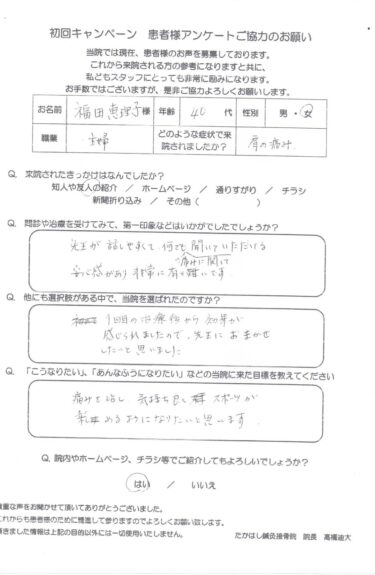 初回キャンペーン 患者様アンケートご協力のお願い
当院では現在、患者様のお声を募集しております。
これから来院される方の参考になりますと共に、
私どもスタッフにとっても非常に励みになります。
お手数ではございますが、是非ご協力よろしくお願いします。
お名前 福田恵理子様 年齢 40 代 性別 男・女
職業 主婦 どのような症状で来院されましたか? 肩の痛み
Q. 来院されたきっかけはなんでしたか?
知人や友人の紹介 / ホームページ / 通りすがり / チラシ
新聞折り込み / その他( )
Q. 問診や治療を受けてみて、第一印象などはいかがでしたでしょうか?
先生が話しやすくて何でも聞いていただける
痛みに関して
安心感があり非常に有り難いです
Q. 他にも選択肢がある中で、当院を選ばれたのですか?
1回目の治療後から効果が
感じられましたので、先生にお任せ
したいと思いました
Q. 「こうなりたい」、「あんなふうになりたい」などの当院に来た目標を教えてください
痛みを治し 気持ち良く スポーツが
楽しめるようになりたいと思います
Q. 院内やホームページ、チラシ等でご紹介してもよろしいでしょうか?
はい / いいえ
貴重な声をお聞かせて頂いてありがとうございました。
これからも患者様のために精進して参りますのでよろしくお願い致します。
頂きました情報は上記の目的以外には一切使用いたしません。 たかはし鍼灸接骨院 院長 高橋迪大